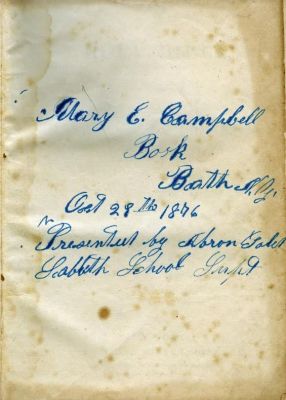 Mary E. Campbell
Book
Bath N.Y.
Oct 28th 1876
Presented by
Sabbeth School Supt